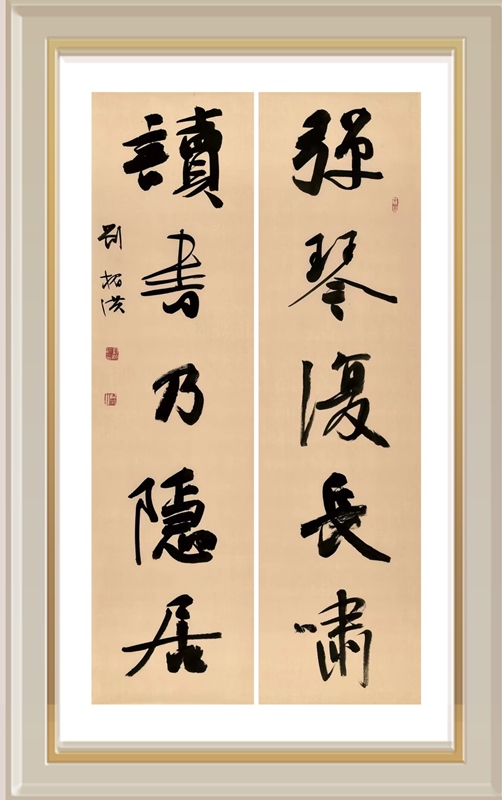 彈琴復長嘯
讀書乃隱居
劉